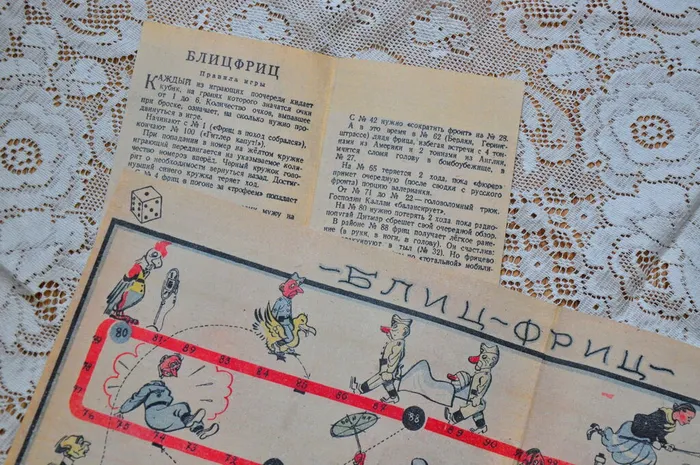 БЛИЦФРИЦ
Правила игры
КАЖДЫЙ из играющих поочереди кидает
кубик, на гранях которого значатся очки
от 1 до 6. Количество очков, выпавшее
при броске, означает, на сколько нужно про-
двинуться в игре.
Начинают с № 1 («Фриц в поход собрался»),
кончают № 100 («Гитлер капут!»).
При попадании в номер на жёлтом кружке
играющий передвигается на указываемое коли-
чество номеров вперёд. Чёрный кружок гово-
рит о необходимости вернуться назад. Достиг-
нувший синего кружка теряет ход.
№ 4 фриц в погоне за «трофеем» попадает
мужу на
С № 42 нужно «сократить фронт» на № 28.
А в это время в № 62 (Берлин, Геринг-
штрассе) дядя фрица, избегая встречи с 4 тон-
нами из Америки и 2 тоннами из Англии,
мчится сломя голову в бомбоубежище, в
№ 27.
На № 65 теряется 2 хода, пока «фюрер»
примет очередную (после сводки с русского
фронта) порцию валерианки.
От № 71 до № 22 — головоломный трюк.
Господин Каллаи «балансирует».
На № 80 нужно потерять 2 хода, пока радио-
попугай Дитмар сбрешет свой очередной обзор.
В районе № 88 фриц получает лёгкое ране-
ние (в руки, в ноги, в голову). Он счастлив:
в тыл (№ 32). Но фрицево
по «тотальной» мобили-
БЛИЦ-ФРИЦ
80 81 82 83 84 85 86 87 88 89 90
79
78
77
76 75 74 73 72